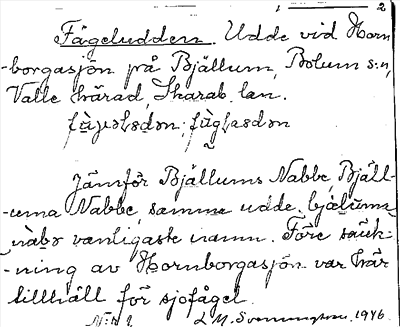 2
Fågeludden. Udde vid Horn-
-borgasjön på Bjällum, Bolum s:n,
Valle härad, Skarab. län.
Jämför Bjällums Nabbe, Bjäll-
-uma Nabbe, samma udde. bjälums
nabə vanligaste namn. Före sänk-
-ning av Hornborgasjön var här
tillhåll för sjöfågel.
1946.